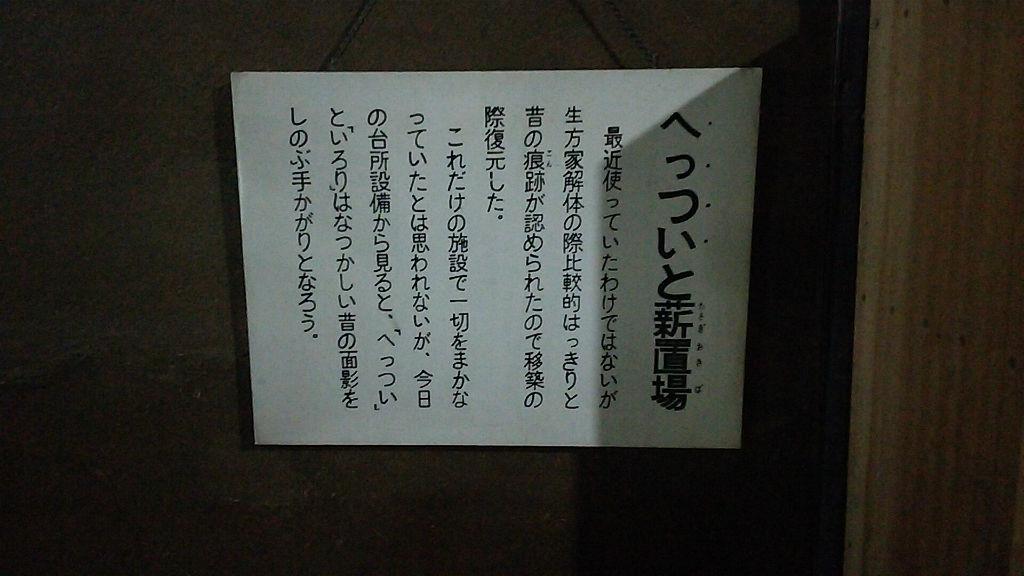 へっついと薪置場
最近使っていたわけではないが
生方家解体の際比較的はっきりと
昔の痕跡が認められたので移築の
際復元した。
これだけの施設で一切をまかな
っていたとは思われないが、今日
の台所設備から見ると、「へっつい」
と「いろり」はなつかしい昔の面影を
しのぶ手かがりとなろう。